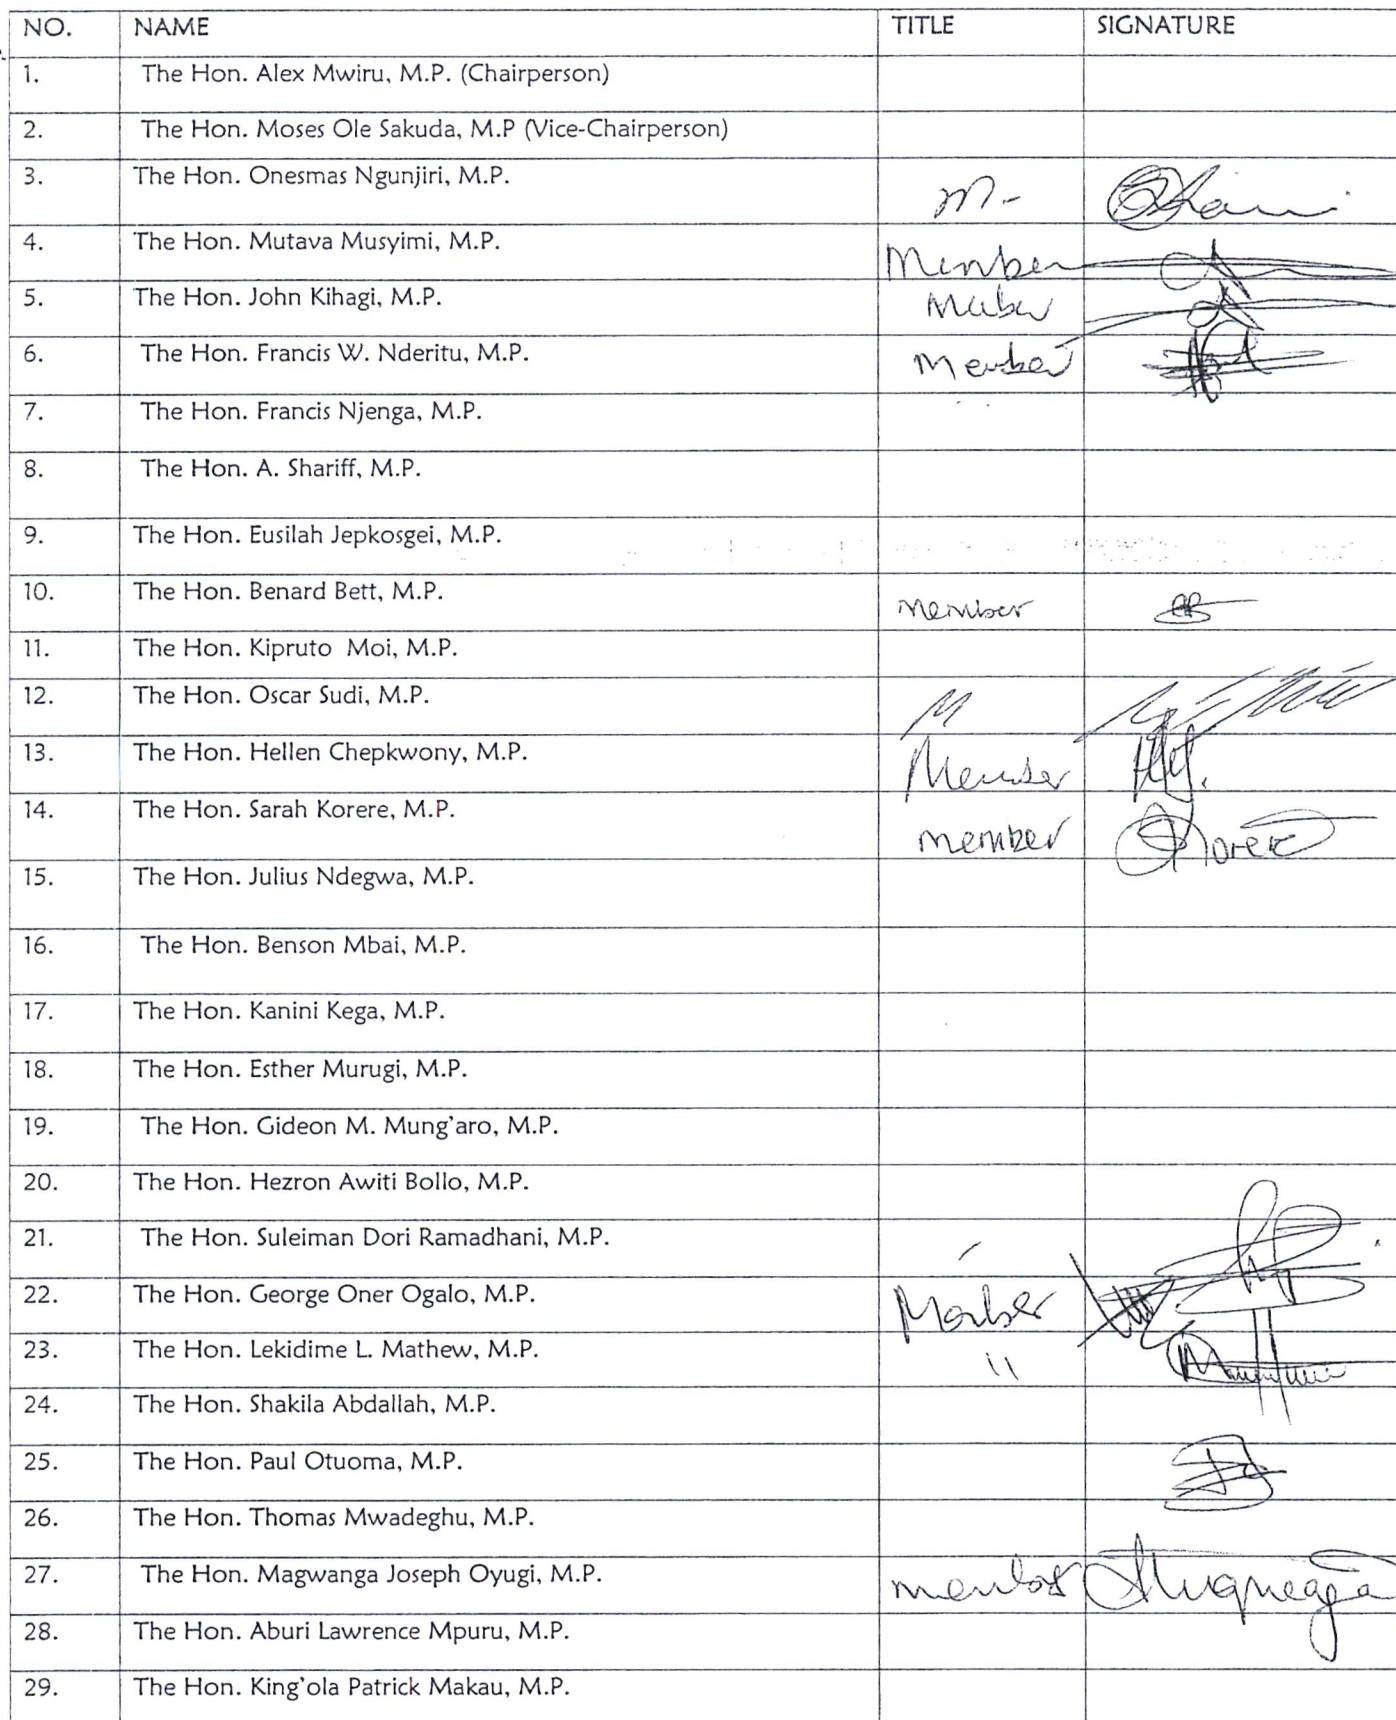 NO. NAME TITLE SIGNATURE
1. The Hon. Alex Mwiru, M.P. (Chairperson)
2. The Hon. Moses Ole Sakuda, M.P (Vice-Chairperson)
3. The Hon. Onesmas Ngunjiri, M.P. M-
4. The Hon. Mutava Musyimi, M.P. Member
5. The Hon. John Kihagi, M.P.
6. The Hon. Francis W. Nderitu, M.P. Member
7. The Hon. Francis Njenga, M.P.
8. The Hon. A. Shariff, M.P.
9. The Hon. Eusilah Jepkosgei, M.P.
10. The Hon. Benard Bett, M.P. member
11. The Hon. Kipruto Moi, M.P.
12. The Hon. Oscar Sudi, M.P. M
13. The Hon. Hellen Chepkwony, M.P. Member
14. The Hon. Sarah Korere, M.P. member Korere
15. The Hon. Julius Ndegwa, M.P.
16. The Hon. Benson Mbai, M.P.
17. The Hon. Kanini Kega, M.P.
18. The Hon. Esther Murugi, M.P.
19. The Hon. Gideon M. Mung'aro, M.P.
20. The Hon. Hezron Awiti Bollo, M.P.
21. The Hon. Suleiman Dori Ramadhani, M.P.
22. The Hon. George Oner Ogalo, M.P. Member
23. The Hon. Lekidime L. Mathew, M.P. 11
24. The Hon. Shakila Abdallah, M.P.
25. The Hon. Paul Otuoma, M.P.
26. The Hon. Thomas Mwadeghu, M.P.
27. The Hon. Magwanga Joseph Oyugi, M.P. member
28. The Hon. Aburi Lawrence Mpuru, M.P.
29. The Hon. King'ola Patrick Makau, M.P.